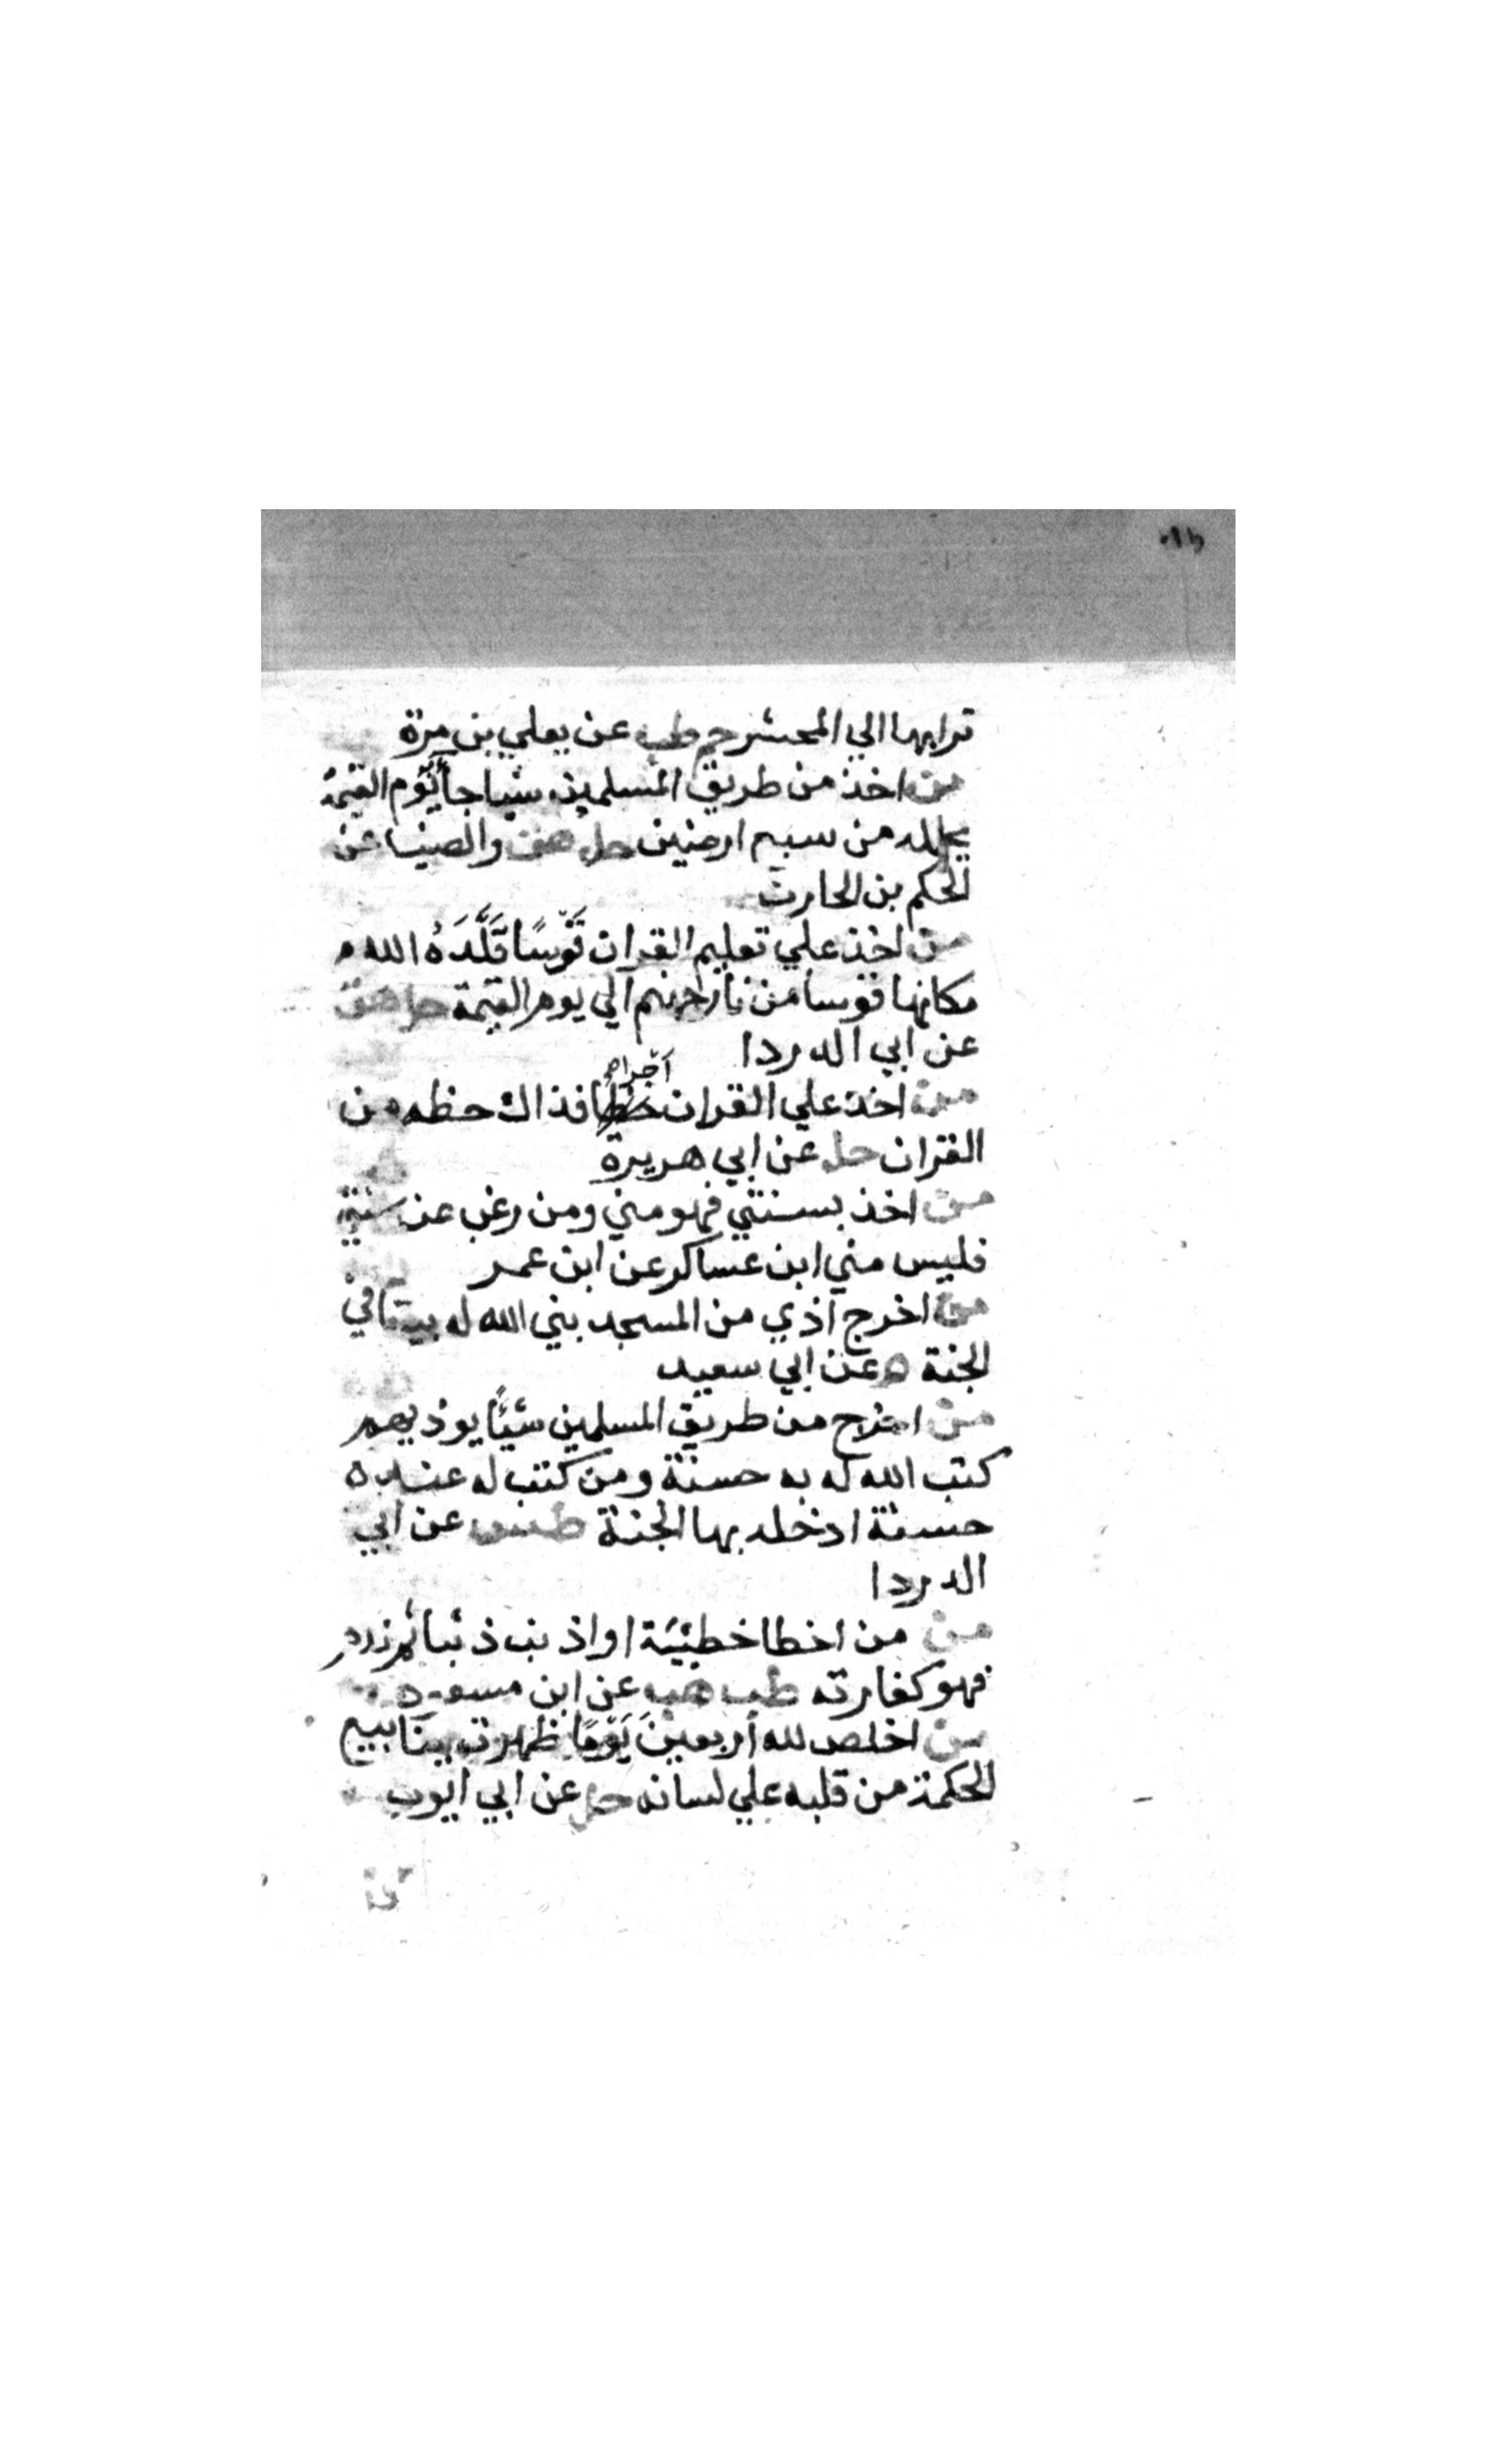 ترابها الي المحشر حم طب عن يعلي بن مرة
من اخذ من طريق المسلمين شيا جا يَوْم القيمة
يحمله من سبع ارضين حل هق والضيا عن
الحكم بن الحارث
من اخذ علي تعليم القران قَوْسًا قَلَّدَهُ الله
مكانها قوسا من نار جهنم الي يوم القيمة حل هق
عن ابي الدردا
اَجْرا
من اخذ علي القران فذاك حظه من
القران حل عن ابي هريرة
من اخذ بسنتي فهو مني ومن رغب عن سنتي
فليس مني ابن عساكر عن ابن عمر
من اخرج اذي من المسجد بني الله له بيتا في
الجنة ه عن ابي سعيد
من اخرج من طريق المسلمين شيئًا يوذيهم
كتب الله له به حسنة ومن كتب له عنده
حسنة ادخله بها الجنة طس عن ابي
الدردا
من من اخطا خطيئة او اذنب ذنبا ثم ندم
فهو كفارته طب هب عن ابن مسعود
من اخلص لله اربعينَ يَوْمًا ظهرت ينابيع
الحكمة من قلبه علي لسانه حل عن ابي ايوب